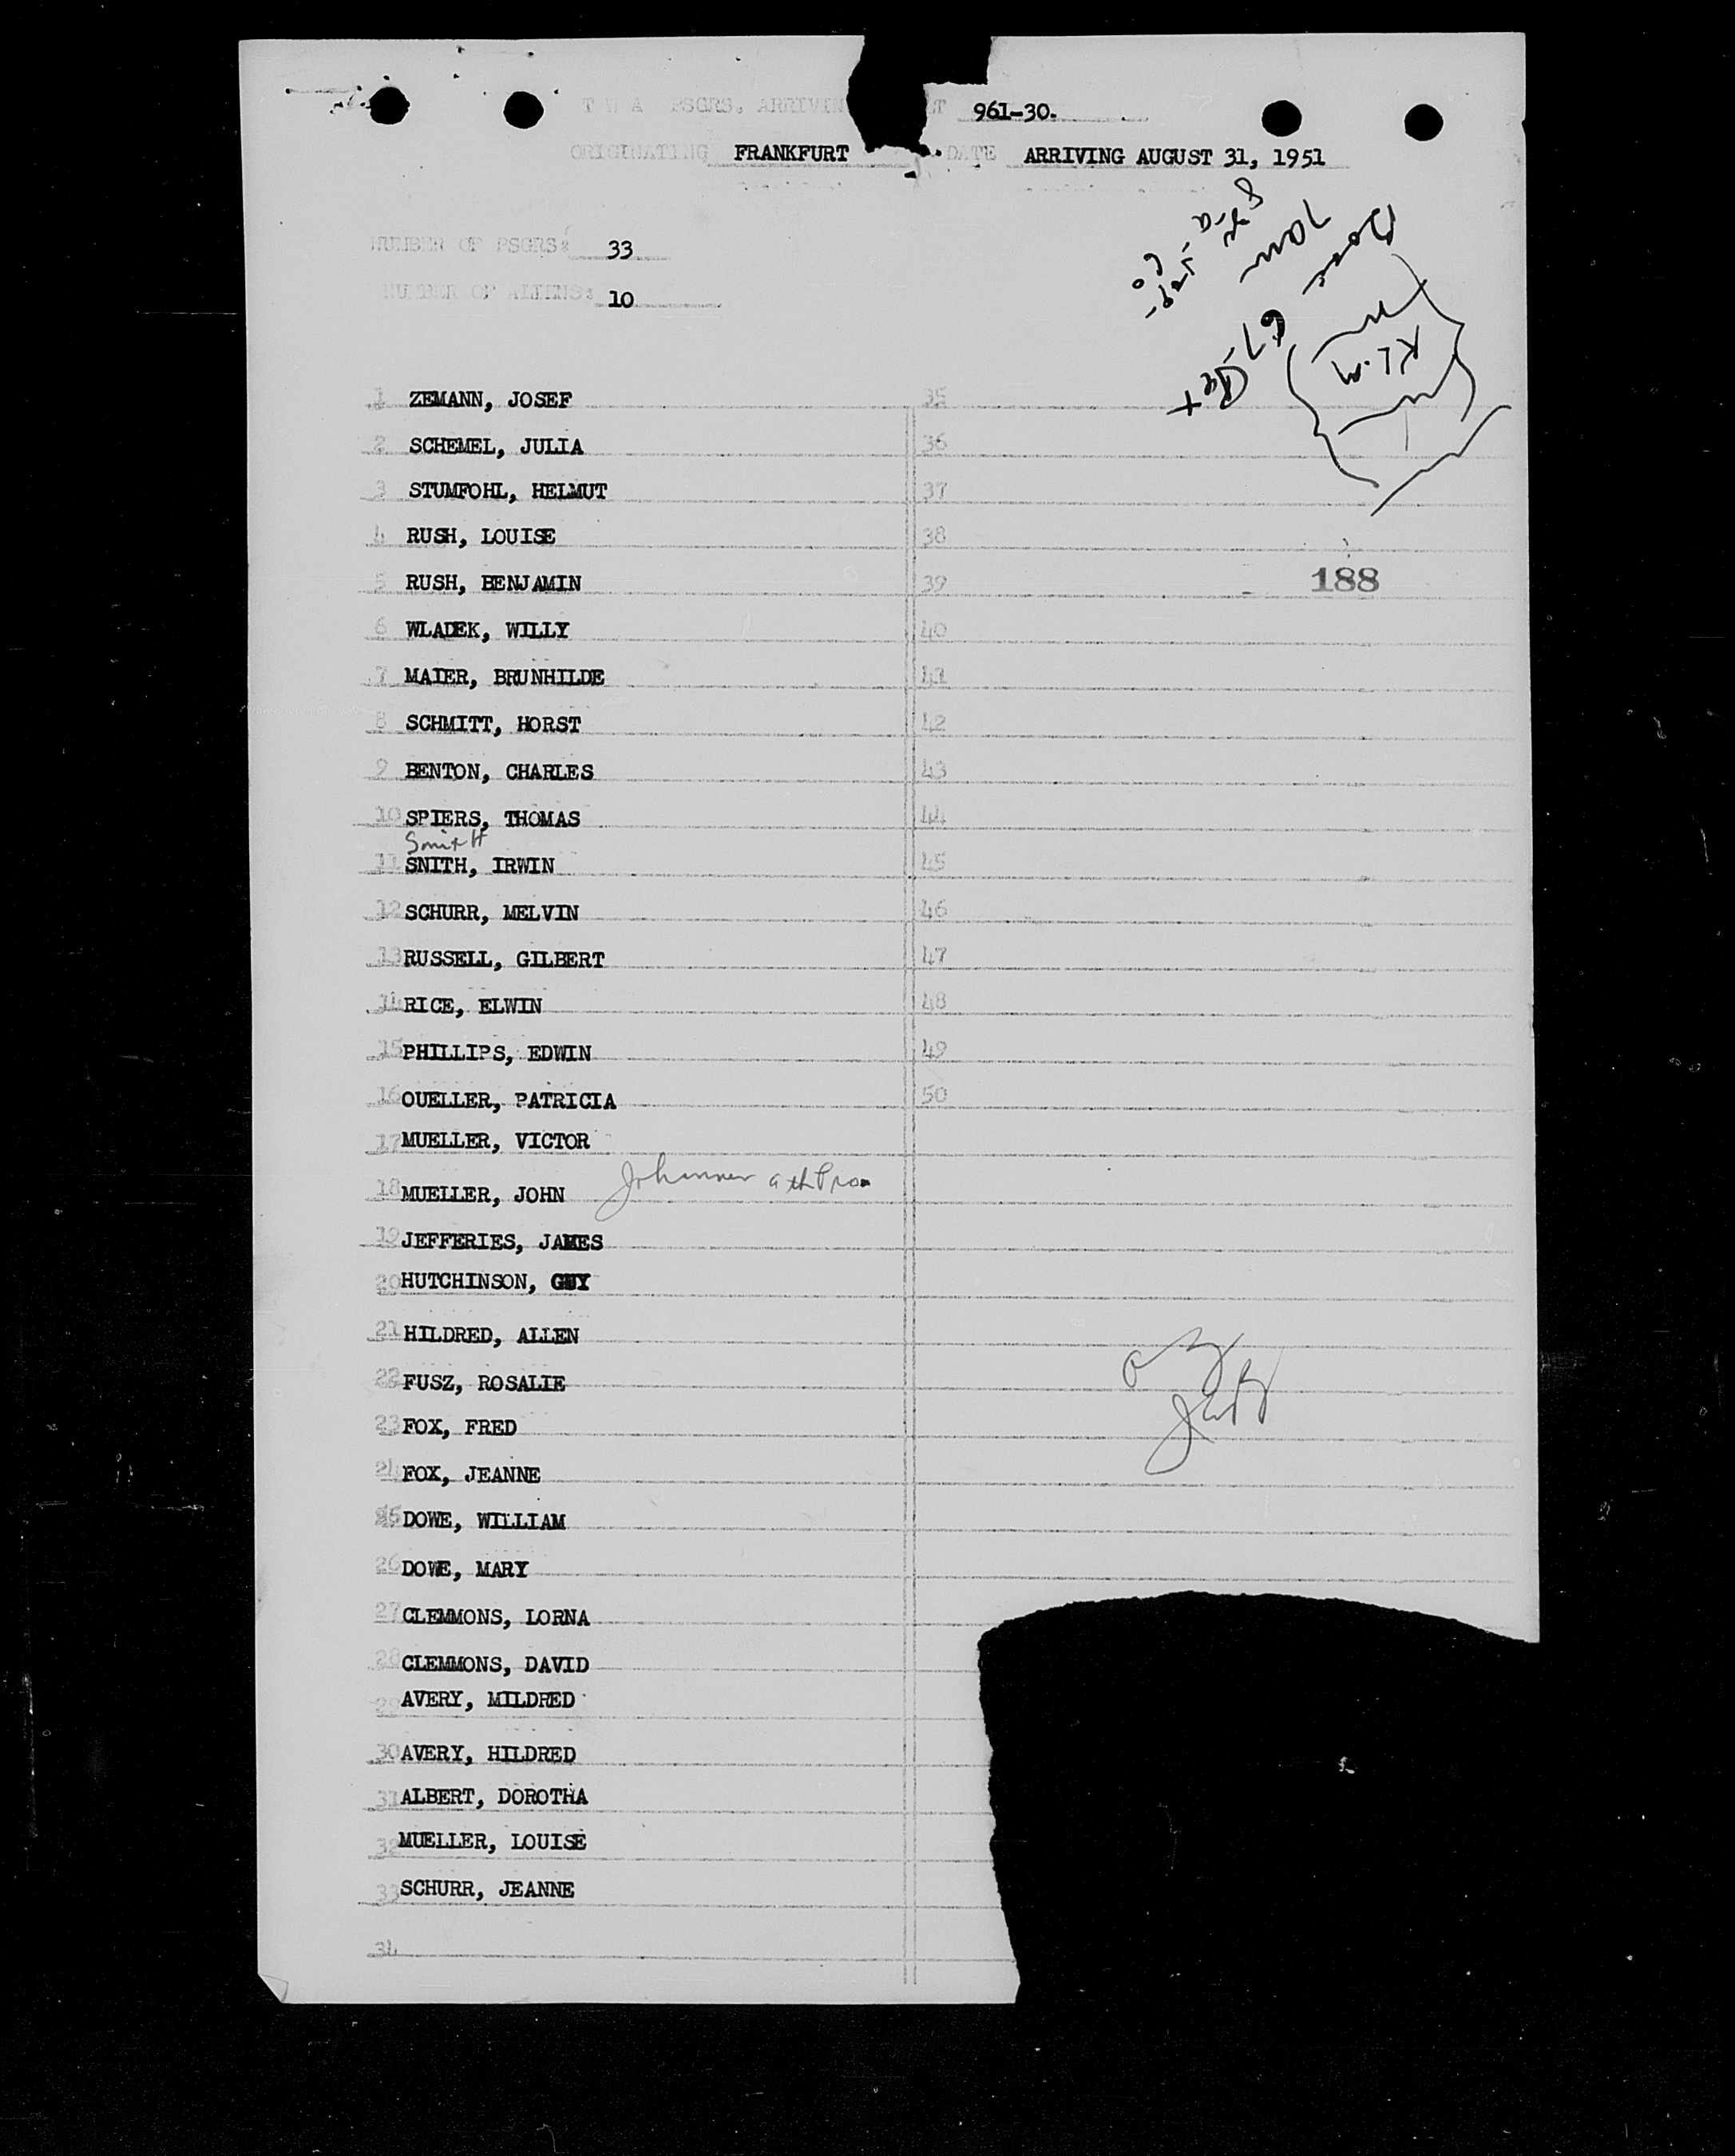 T W A PSGRS. ARRIVIN T 961-30.
ORIGINATING FRANKFURT DATE ARRIVING AUGUST 31, 1951
NUMBER OF PSGRS: 33
NUMBER OF ALIENS: 10
KLM
1 ZEMANN, JOSEF 35
2 SCHEMEL, JULIA 36
3 STUMFOHL, HELMUT 37
4 RUSH, LOUISE 38
5 RUSH, BENJAMIN 39 188
6 WLADEK, WILLY 40
7 MAIER, BRUNHILDE 41
8 SCHMITT, HORST 42
9 BENTON, CHARLES 43
10 SPIERS, THOMAS 44
Smith
11 SNITH, IRWIN 45
12 SCHURR, MELVIN 46
13 RUSSELL, GILBERT 47
14 RICE, ELWIN 48
15 PHILLIPS, EDWIN 49
16 OUELLER, PATRICIA 50
17 MUELLER, VICTOR
18 MUELLER, JOHN
19 JEFFERIES, JAMES
20 HUTCHINSON, GUY
21 HILDRED, ALLEN
22 FUSZ, ROSALIE
23 FOX, FRED
24 FOX, JEANNE
25 DOWE, WILLIAM
26 DOWE, MARY
27 CLEMMONS, LORNA
28 CLEMMONS, DAVID
29 AVERY, MILDRED
30 AVERY, HILDRED
31 ALBERT, DOROTHA
32 MUELLER, LOUISE
33 SCHURR, JEANNE
34